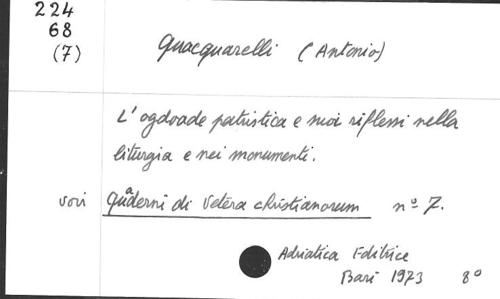 224
68
(7)
Quacquarelli (Antonio)
L'ogdoade patristica e suoi riflessi nella
liturgia e nei monumenti.
voir Quaderni di Vetera christianorum nº 7.
Adriatica Editrice
Bari 1973 8º